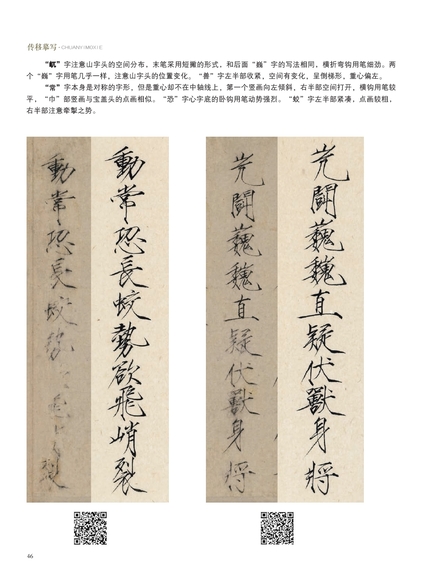 传移摹写 · CHUANYIMOXIE
”字注意山字头的空间分布，末笔采用短撇的形式，和后面“巍”字的写法相同，横折弯钩用笔细劲。两
个“巍”字用笔几乎一样，注意山字头的位置变化。“兽”字左半部收紧，空间有变化，呈倒梯形，重心偏左。
“常”字本身是对称的字形，但是重心却不在中轴线上，第一个竖画向左倾斜，右半部空间打开，横钩用笔较
平，“巾”部竖画与宝盖头的点画相似。“恐”字心字底的卧钩用笔动势强烈。“蛟”字左半部紧凑，点画较粗，
右半部注意牵掣之势。
鬭巍巍直疑伏獸身將
鬭巍巍直疑伏獸身將
動常恐長蛟勢欲飛峭裂
動常恐長蛟勢裂
66